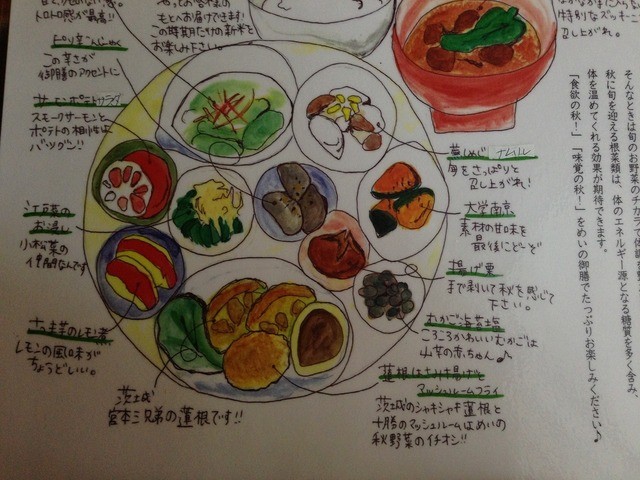 トロトロ感が最高!!
もとへお届けできます!
この時期だけの新米を
お楽しみ下さい。
特別なズッキーニ
召し上がれ。
ピリ辛こんにゃく
この辛さが
御膳のアクセントに
サーモンポテトサラダ
スモークサーモンと
ポテトの相性は
バツグン!!
江戸菜の
お浸し
小松菜の
仲間なんです
さつま芋のレモン煮
レモンの風味が
ちょうどいい。
茨城
宮本三兄弟の蓮根です!!
黄しめじナムル
旬をさっぱりと
召し上がれ!
大学南京
素材の甘味を
最後にどーぞ
揚げ栗
まで剥いて秋を感じて
下さい。
むかご海苔塩
ころころかわいいむかごは
山芋の赤ちゃん♪
蓮根はさみ揚げと
マッシュルームフライ
茨城のシャキシャキ蓮根と
十勝のマッシュルームはめいの
秋野菜のイチオシ!!
そんなときは旬のお野菜
秋に旬を迎える根菜類は、体のエネルギー源となる糖質を多く含み、
体を温めてくれる効果が期待できます。
「食欲の秋!」「味覚の秋!」をめいの御膳でたっぷりお楽しみください♪